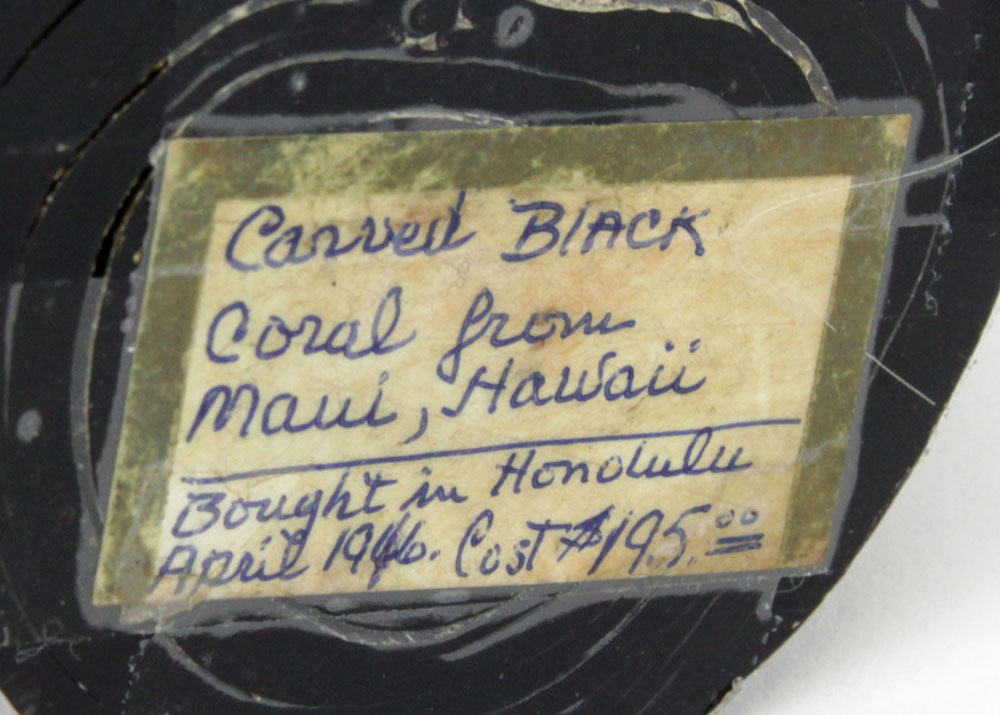 Carved BLACK
Coral from
Maui, Hawaii
Bought in Honolulu
April Cost $195.00